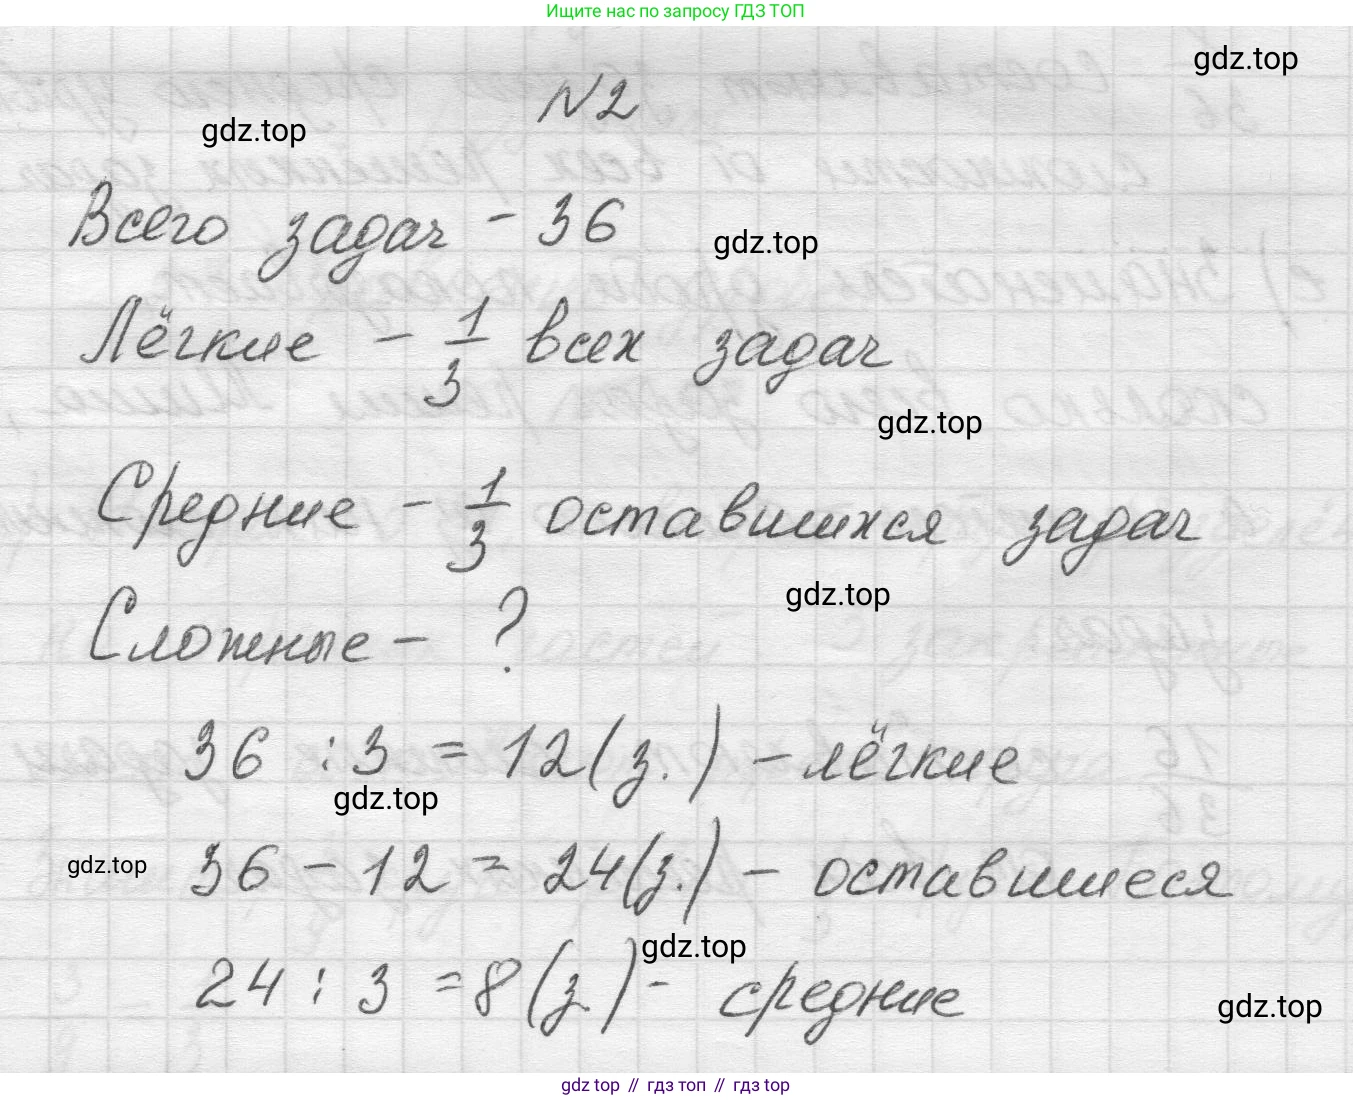 Ищите нас по запросу ГДЗ ТОП
gdz.top
N2
gdz.top
Всего задач - 36
gdz.top
Лёгкие - 1/3 всех задач
gdz.top
Средние - 1/3 оставшихся задач
gdz.top
Сложные - ?
36 : 3 = 12 (з.) - лёгкие
gdz.top
gdz.top
36 - 12 = 24 (з.) - оставшиеся
gdz.top
24 : 3 = 8 (з.) - средние
gdz.top
gdz top // гдз топ // гдз top